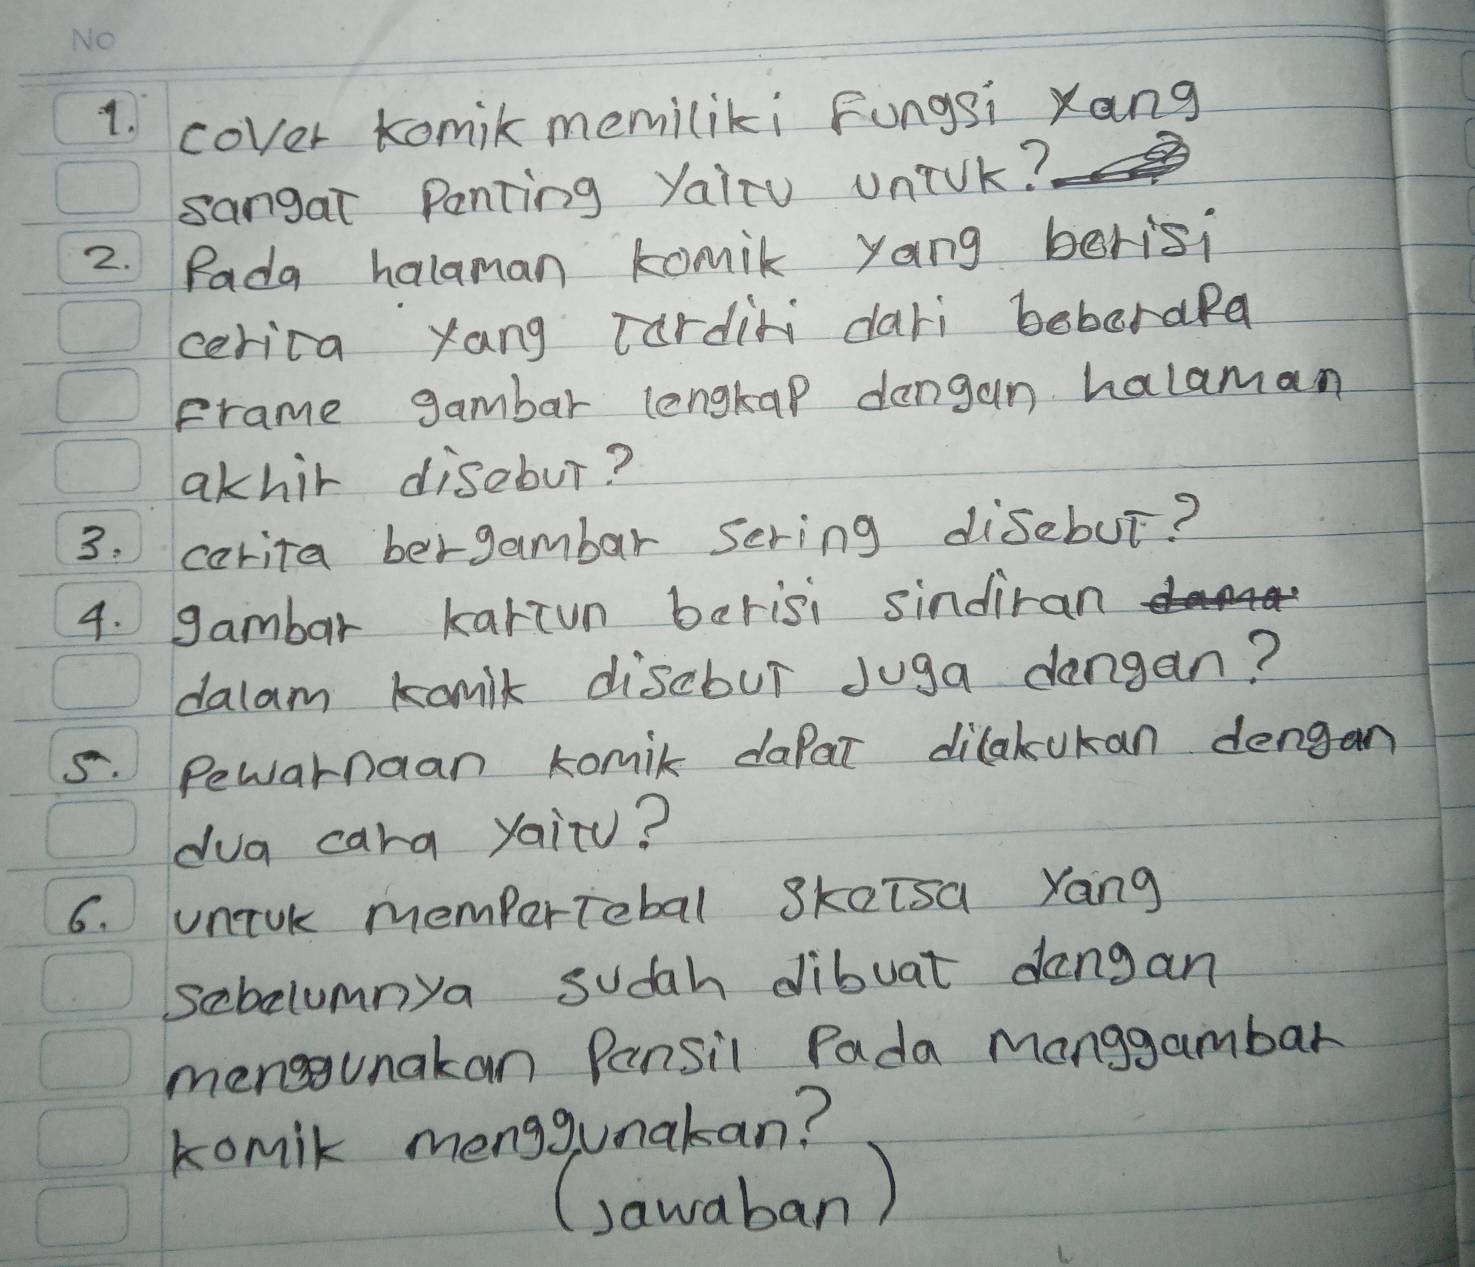 No
1. cover komik memiliki Fungsi yang
sangat Penting yaitu untuk?
2. Pada halaman komik yang berisi
cerita yang terdiri dari beberapa
Frame gambar lengkap dengan halaman
akhir disebut?
3. cerita bergambar sering disebut?
4. gambar kartun berisi sindiran dama
dalam komik disebut Juga dengan?
5. Pewarnaan komik dapat dilakukan dengan
dua cara yaitu?
6. untuk mempertebal sketsa yang
sebelumnya sudah dibuat dengan
menggunakan Pensil Pada menggambar
komik menggunakan?
(Jawaban)